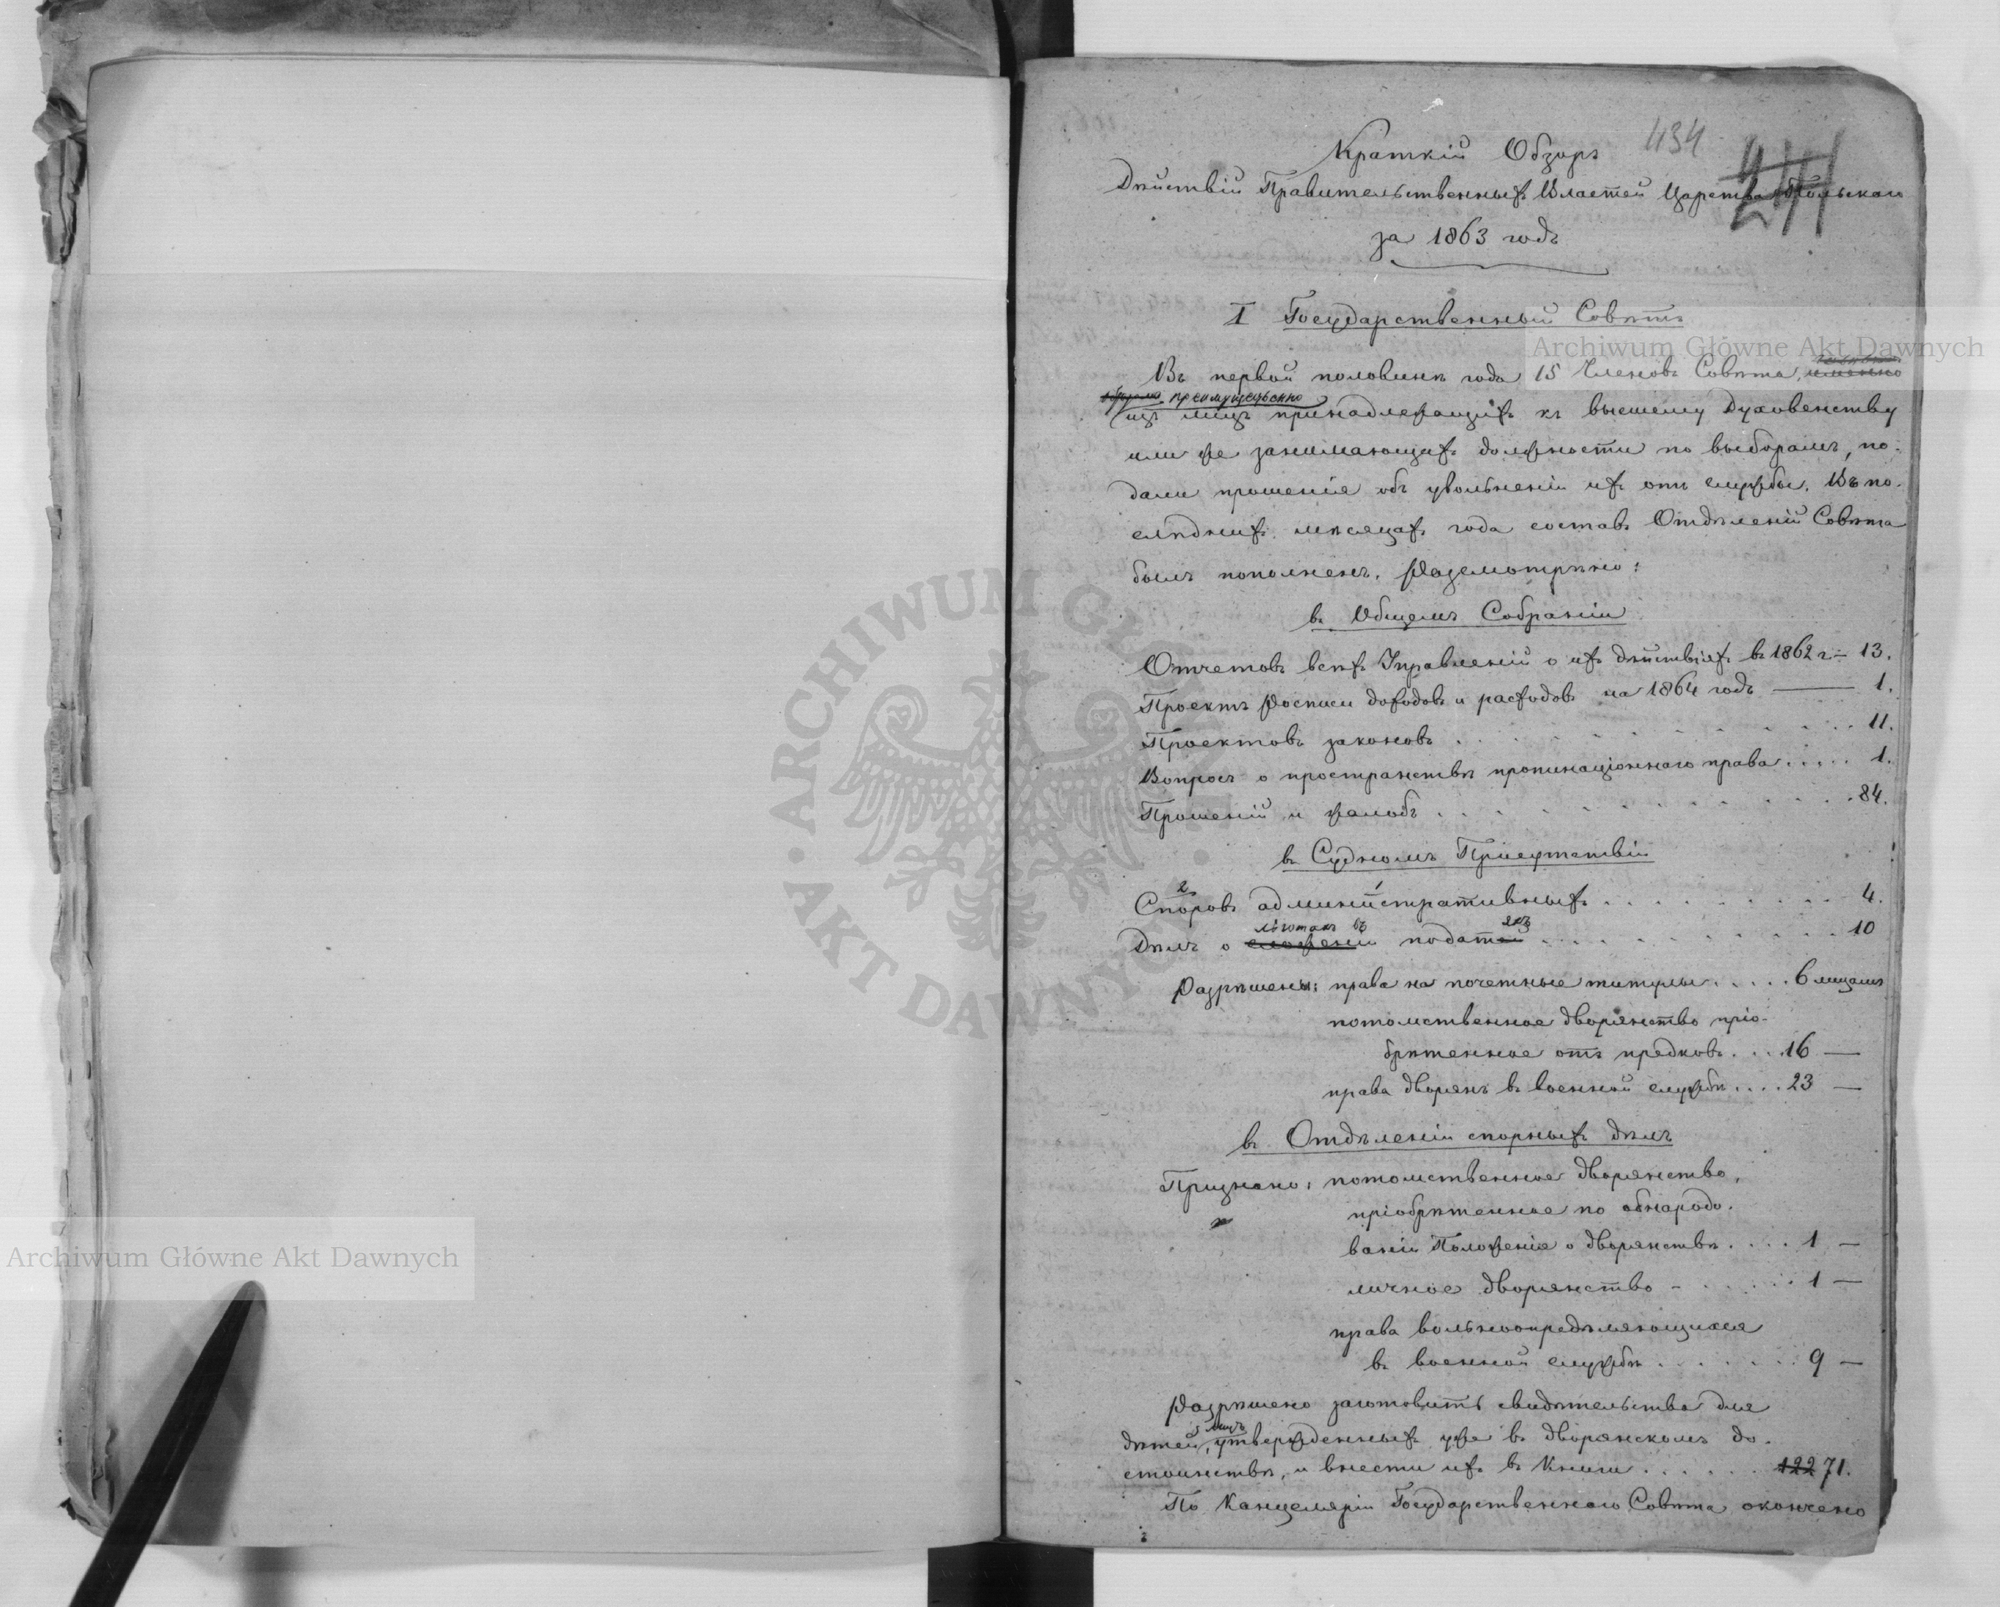 434
Краткій Обзоръ
Дѣйствій Правительственныхъ Властей Царства Польскаго
за 1863 годъ
I Государственный Совѣтъ
Въ первой половинѣ года 15 Членовъ Совѣта, именно
преимущественно
изъ лицъ принадлежащихъ къ высшему Духовенству
или же занимающихъ должности по выборамъ, по-
дали прошенія объ увольненіи ихъ отъ службы. Въ по-
слѣднихъ мѣсяцахъ года составъ Отдѣленій Совѣта
былъ пополненъ. Разсмотрѣно:
въ Общемъ Собраніи
Отчетовъ всѣхъ Управленій о ихъ дѣйствіяхъ въ 1862 г. — 13.
Проектъ росписи доходовъ и расходовъ на 1864 годъ — 1.
Проектовъ законовъ . . . . . . . . . . 11.
Вопросъ о пространствѣ пропинаціоннаго права . . . . . 1.
Прошеній и жалобъ . . . . . . . . . . 84.
въ Судномъ Присутствіи
2 1
Споровъ административныхъ . . . . . . . . . 4.
льготахъ въ яхъ
Дѣлъ о сложеніи податей . . . . . . . . . . 10
Разрѣшены: права на почетные титулы . . . . . 6 лицамъ
потомственное дворянство прiо-
брѣтенное отъ предковъ . . . 16 —
права дворянъ въ военной службѣ . . . . 23 —
въ Отдѣленіи спорныхъ дѣлъ
Признано: потомственное дворянство,
пріобрѣтенное по обнародо-
ваніи Положенія о дворянствѣ . . . . 1 —
личное дворянство - . . . . . . 1 —
права вольноопредѣляющихся
въ военной службѣ . . . . . . . 9 —
Разрѣшено заготовить свидѣтельства для
лицъ
дѣтей, утвержденныхъ уже въ дворянскомъ до-
стоинствѣ, и внести ихъ въ Книги . . . . . . 122 71.
По Канцеляріи Государственнаго Совѣта окончено
Archiwum Główne Akt Dawnych
Archiwum Główne Akt Dawnych
ARCHIWUM GŁÓWNE AKT DAWNYCH